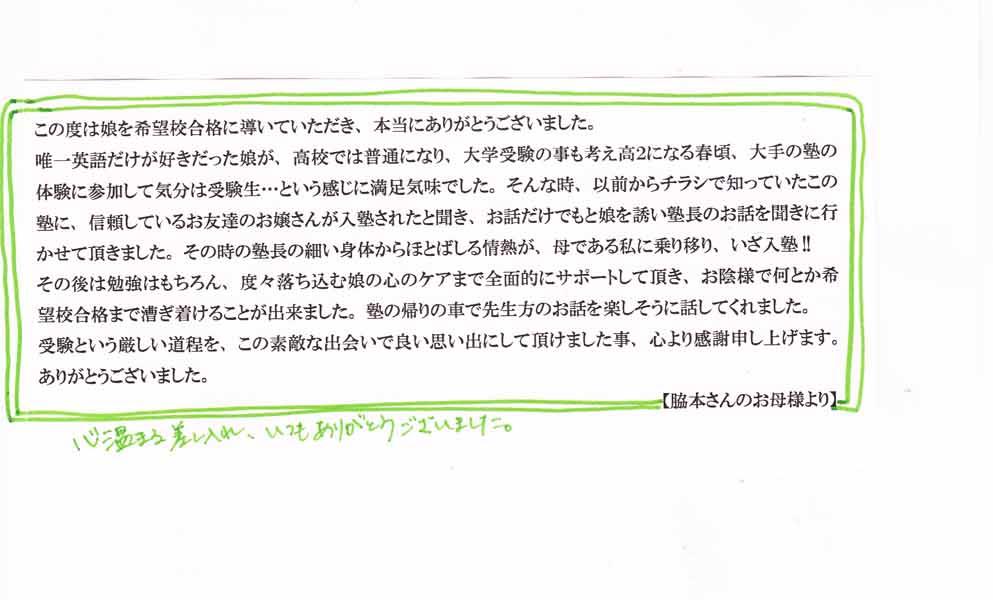 この度は娘を希望校合格に導いていただき、本当にありがとうございました。
唯一英語だけが好きだった娘が、高校では普通になり、大学受験の事も考え高2になる春頃、大手の塾の
体験に参加して気分は受験生…という感じに満足気味でした。そんな時、以前からチラシで知っていたこの
塾に、信頼しているお友達のお嬢さんが入塾されたと聞き、お話だけでもと娘を誘い塾長のお話を聞きに行
かせて頂きました。その時の塾長の細い身体からほとばしる情熱が、母である私に乗り移り、いざ入塾!!
その後は勉強はもちろん、度々落ち込む娘の心のケアまで全面的にサポートして頂き、お陰様で何とか希
望校合格まで漕ぎ着けることが出来ました。塾の帰りの車で先生方のお話を楽しそうに話してくれました。
受験という厳しい道程を、この素敵な出会いで良い思い出にして頂けました事、心より感謝申し上げます。
ありがとうございました。
【脇本さんのお母様より】
心温まる差し入れ、いつもありがとうございました。